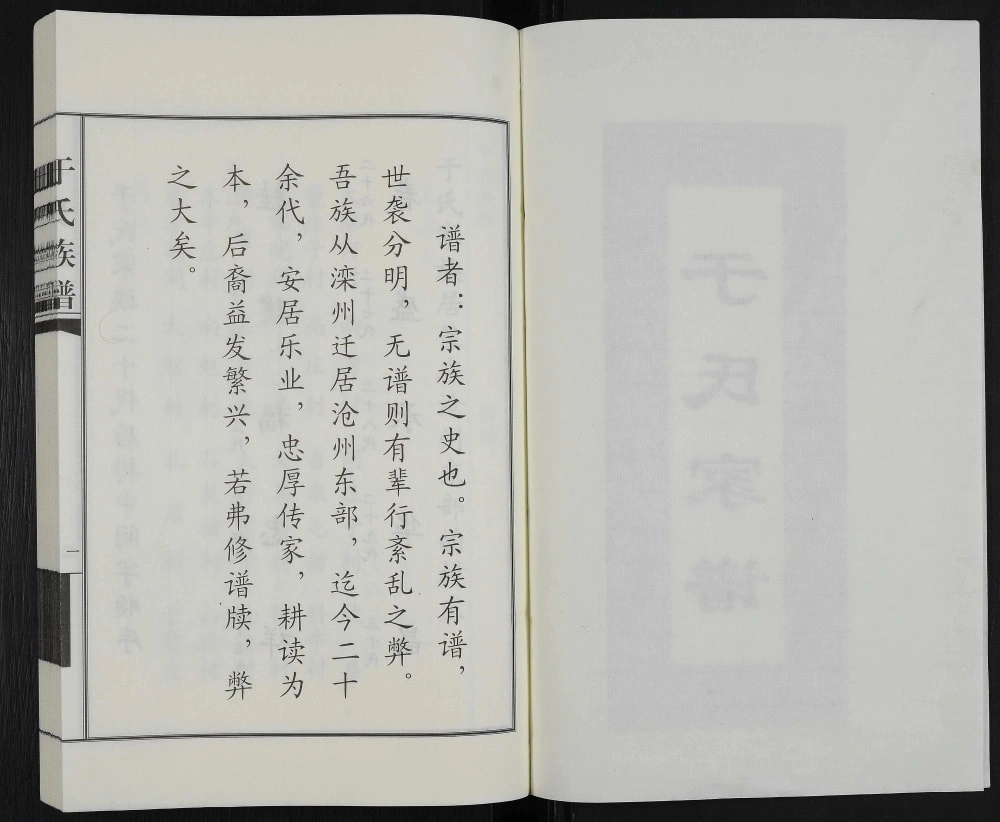 谱者：宗族之史也。宗族有谱，
世袭分明，无谱则有辈行紊乱之弊。
吾族从滦州迁居沧州东部，迄今二十
余代，安居乐业，忠厚传家，耕读为
本，后裔益发繁兴，若弗修谱牍，弊
之大矣。
于氏族谱
一
于氏家谱